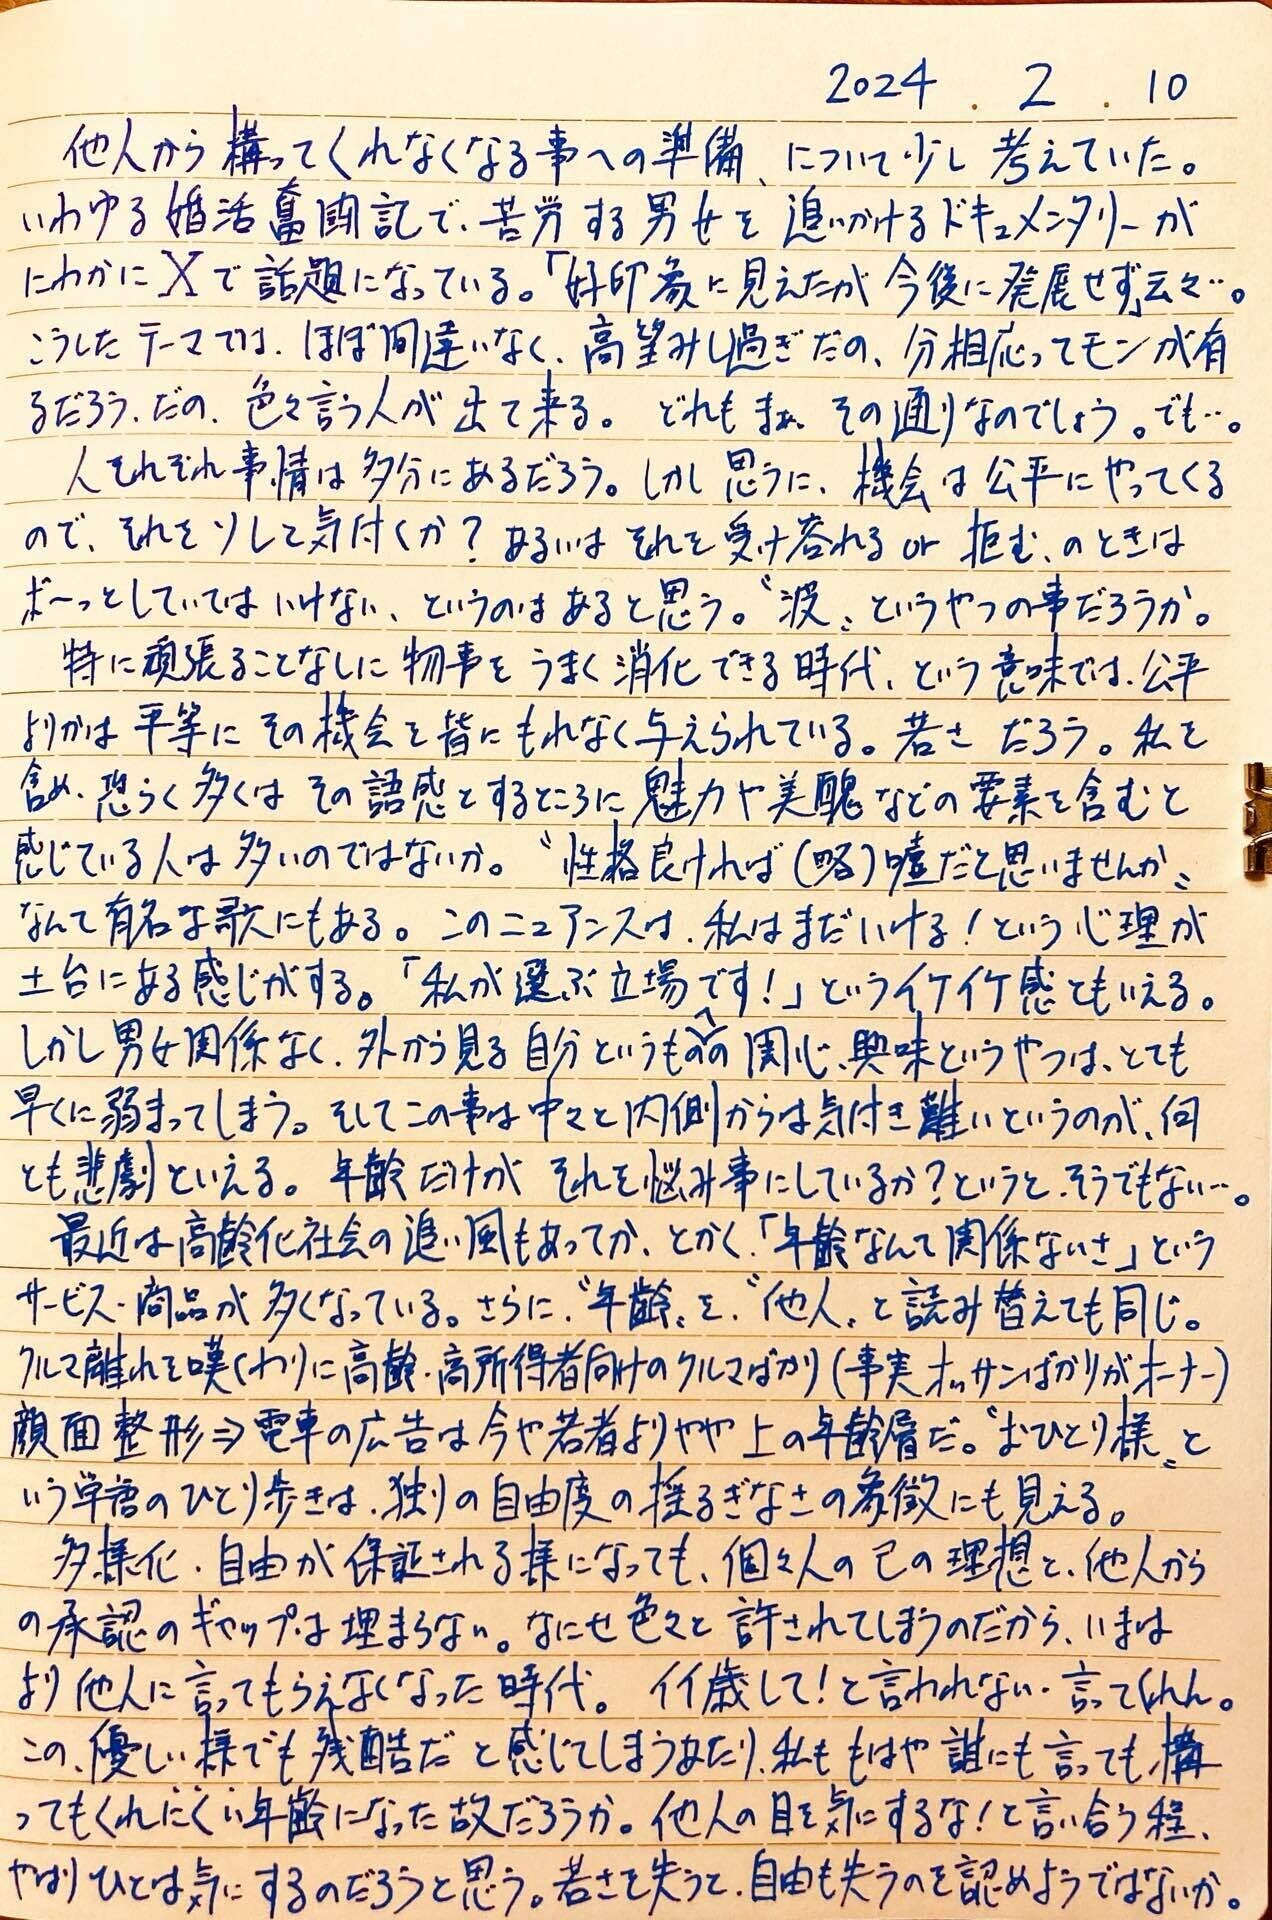 2024 . 2 . 10
他人から構ってくれなくなる事への準備、について少し考えていた。
いわゆる婚活奮闘記で、苦労する男女を追いかけるドキュメンタリーが
にわかにXで話題になっている。「好印象に見えたが今後に発展せず」云々…。
こうしたテーマでは、ほぼ間違いなく、高望みし過ぎだの、分相応ってモンが有
るだろう、だの、色々言う人が出て来る。どれもまぁ、その通りなのでしょう。でも…。
人それぞれ事情は多分にあるだろう。しかし思うに、機会は公平にやってくる
ので、それをソレして気付くか？あるいはそれを受け容れる or 拒む、のときは
ボ〜っとしていてはいけない、というのはあると思う。〝波〟というやつの事だろうか。
特に頑張ることなしに物事をうまく消化できる時代、という意味では、公平
よりかは平等にその機会を皆にもれなく与えられている。若さだろう。私を
含め、恐らく多くはその語感とするところに魅力や美醜などの要素を含むと
感じている人は多いのではないか。〝性格良ければ(略)嘘だと思いませんか〟
なんて有名な歌にもある。このニュアンスは、私はまだいける！という心理が
土台にある感じがする。「私が選ぶ立場です！」というイケイケ感ともいえる。
しかし男女関係なく、外から見る自分というものへの関心、興味というやつは、とても
早くに弱まってしまう。そしてこの事は中々と内側からは気付き難いというのが、何
とも悲劇といえる。年齢だけがそれを悩み事にしているか？というと、そうでもない…。
最近は高齢化社会の追い風もあってか、とかく、「年齢なんて関係ないさ」という
サービス・商品が多くなっている。さらに〝年齢〟を、〝他人〟と読み替えても同じ。
クルマ離れを嘆くわりに高齢・高所得者向けのクルマばかり(事実オッサンばかりがオーナー)
顔面整形⇒電車の広告は今や若者よりやや上の年齢層だ。〝おひとり様〟と
いう単語のひとり歩きは、独りの自由度の揺るぎなさの象徴にも見える。
多様化・自由が保証される様になっても、個々人の己の理想と、他人から
の承認のギャップは埋まらない。なにせ色々と許されてしまうのだから、いまは
より他人に言ってもらえなくなった時代。イイ歳して！と言われない・言ってくれん。
この、優しい様でも残酷だと感じてしまうあたり、私ももはや誰にも言っても構
ってもくれにくい年齢になった故だろうか。他人の目を気にするな！と言い合う程、
やはりひとは気にするのだろうと思う。若さを失うと、自由も失うのを認めようではないか。